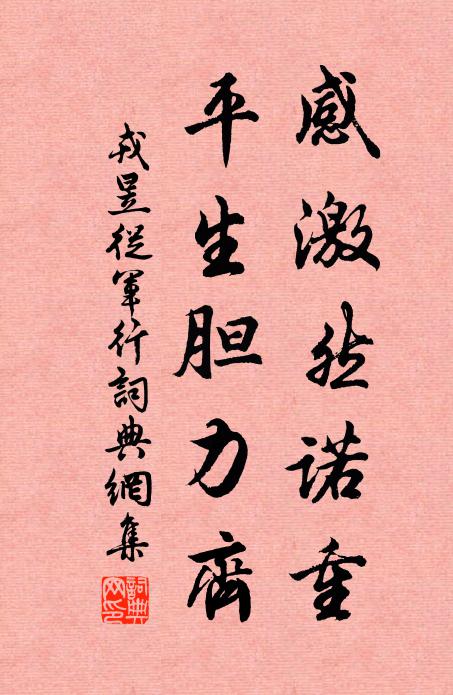 感激然诺重
平生胆力齊
戎昱從軍行詞典網集
詞典網印